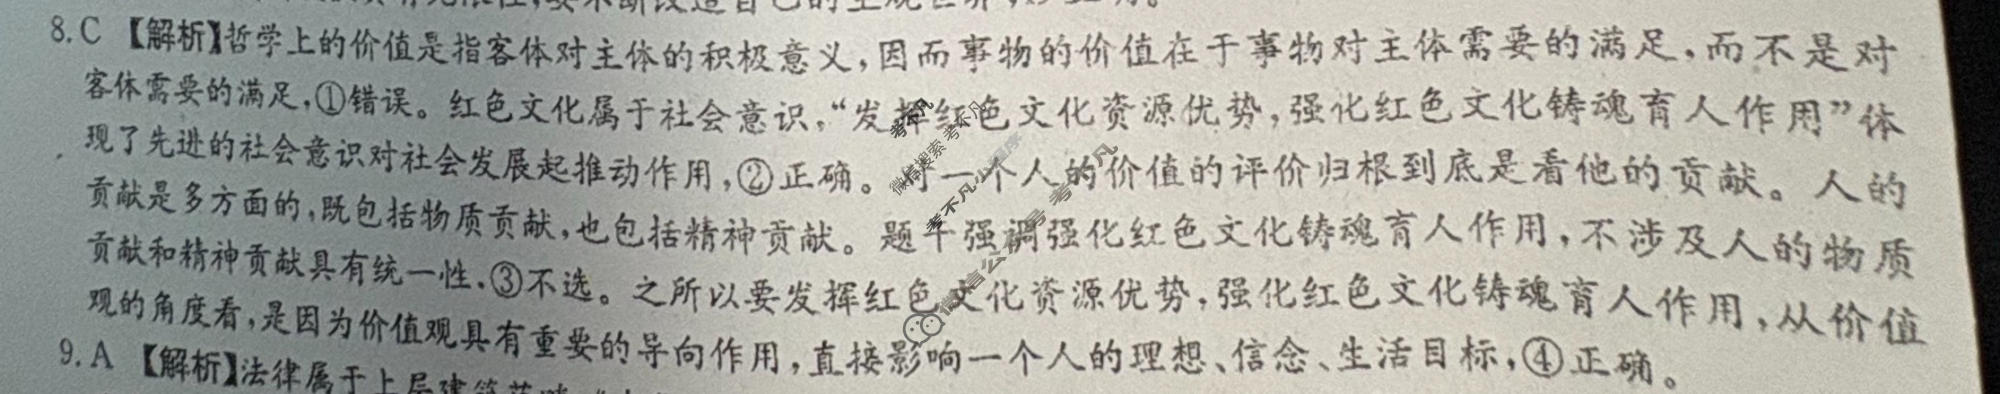 8. C 【解析】哲学上的价值是指客体对主体的积极意义,因而事物的价值在于事物对主体需要的满足,而不是对
客体需要的满足,①错误。红色文化属于社会意识,“发挥红色文化资源优势,强化红色文化铸魂育人作用”体
现了先进的社会意识对社会发展起推动作用,②正确。对一个人的价值的评价归根到底是看他的贡献。人的
贡献是多方面的,既包括物质贡献,也包括精神贡献。题干强调强化红色文化铸魂育人作用,不涉及人的物质
贡献和精神贡献具有统一性,③不选。之所以要发挥红色文化资源优势,强化红色文化铸魂育人作用,从价值
观的角度看,是因为价值观具有重要的导向作用,直接影响一个人的理想、信念、生活目标,④正确。
9. A 【解析】法律属于上层建筑
考不凡
微信搜索 考不凡
考不凡小程序
微信公众号 考不凡